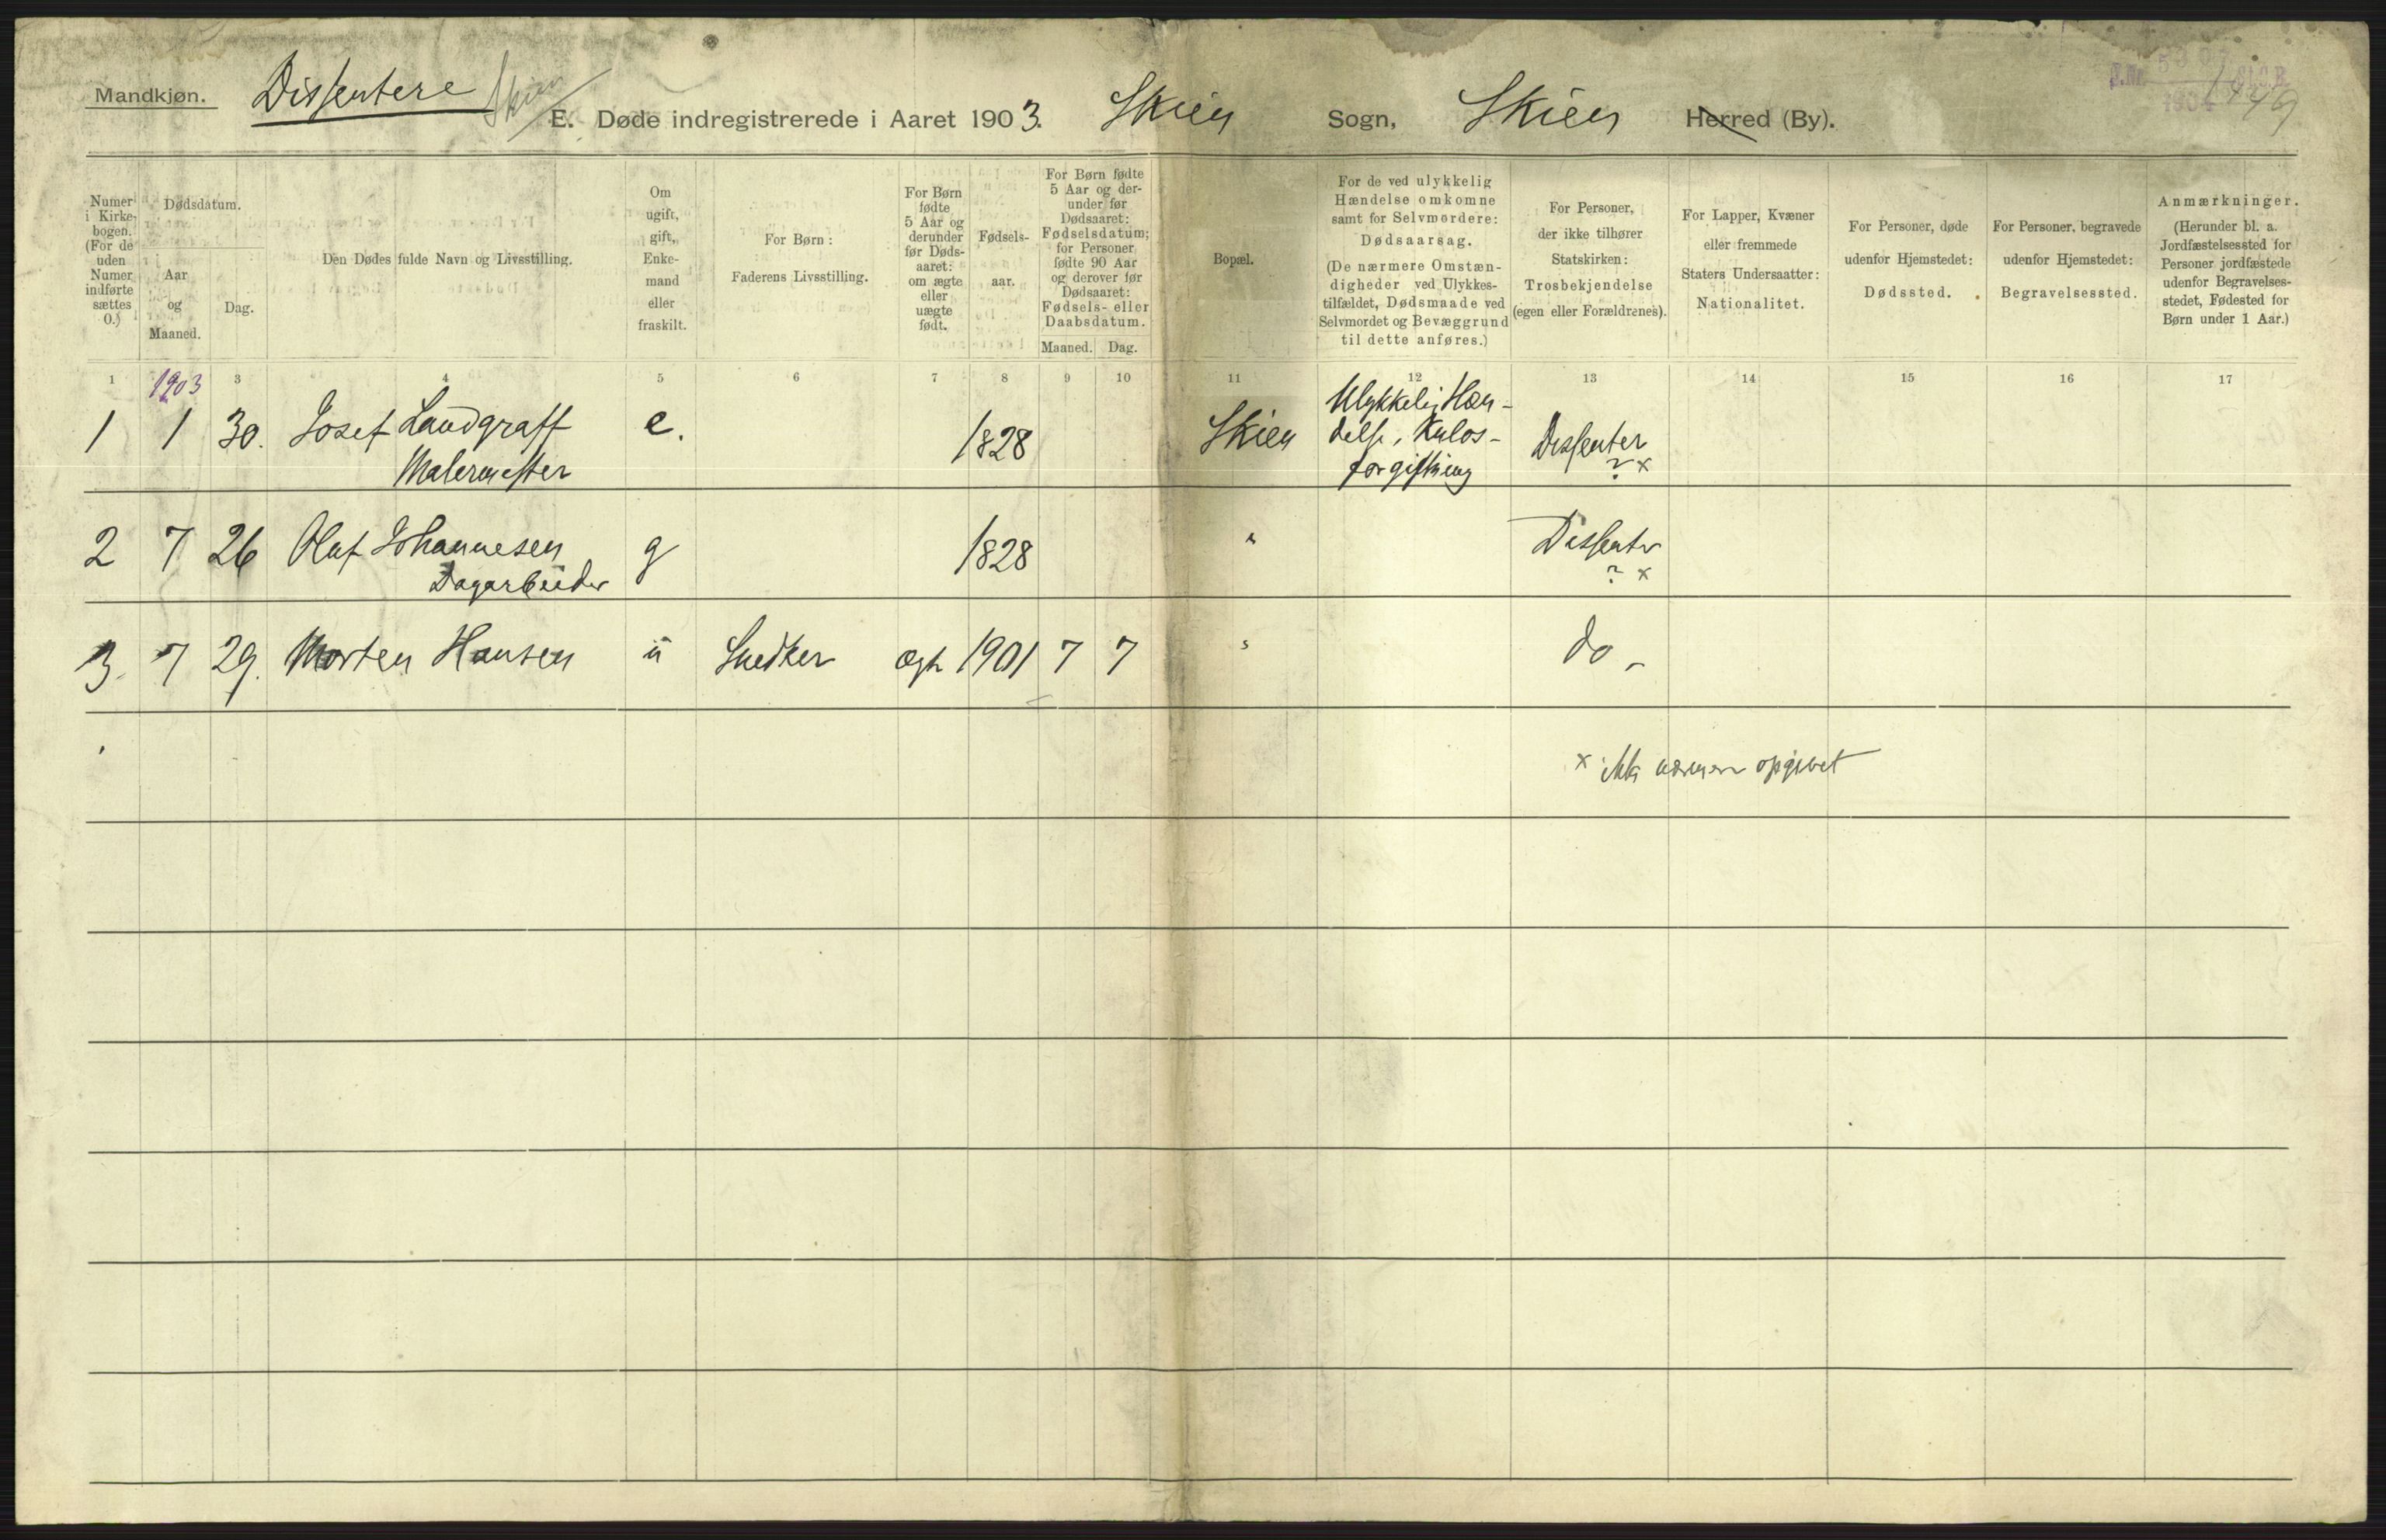 Mandkjøn.
Dissentere
Skien
E. Døde indregistrerede i Aaret 1903.
Skien Sogn, Skien Herred (By).
Numer i Kirke-bogen. (For de uden Numer indførte sættes 0.)
Dødsdatum.
Aar og Maaned.
Dag.
Den Dødes fulde Navn og Livsstilling.
Om ugift, gift, Enke-mand eller fraskilt.
For Børn: Faderens Livsstilling.
For Børn fødte 5 Aar og derunder før Døds-aaret: om ægte eller uægte født.
Fødsels-aar.
For Børn fødte 5 Aar og der-under før Dødsaaret: Fødselsdatum; for Personer fødte 90 Aar og derover før Dødsaaret: Fødsels- eller Daabsdatum.
Maaned. Dag.
Bopæl.
For de ved ulykkelig Hændelse omkomne samt for Selvmordere: Dødsaarsag. (De nærmere Omstæn-digheder ved Ulykkes-tilfældet, Dødsmaade ved Selvmordet og Bevæggrund til dette anføres.)
For Personer, der ikke tilhører Statskirken: Trosbekjendelse (egen eller Forældrenes).
For Lapper, Kvæner eller fremmede Staters Undersaatter: Nationalitet.
For Personer, døde udenfor Hjemstedet: Dødssted.
For Personer, begravede udenfor Hjemstedet: Begravelsessted.
Anmærkninger. (Herunder bl. a. Jordfæstelsessted for Personer jordfæstede udenfor Begravelses-stedet, Fødested for Børn under 1 Aar.)
1 3 4 5 6 7 8 9 10 11 12 13 14 15 16 17
1903
1 1 30. Josef Landgraff e. 1828 Skien Ulykkelig Hæn-
delse, Kulos-
Malermester forgiftning
Dissenter
? x
2 7 26 Oluf Johannesen g 1828 " Dissenter
Dagarbeider ? x
3. 7 29. Morten Hansen u Snedker ægte 1901 7 7 " do -
x ikke nærmere opgivet